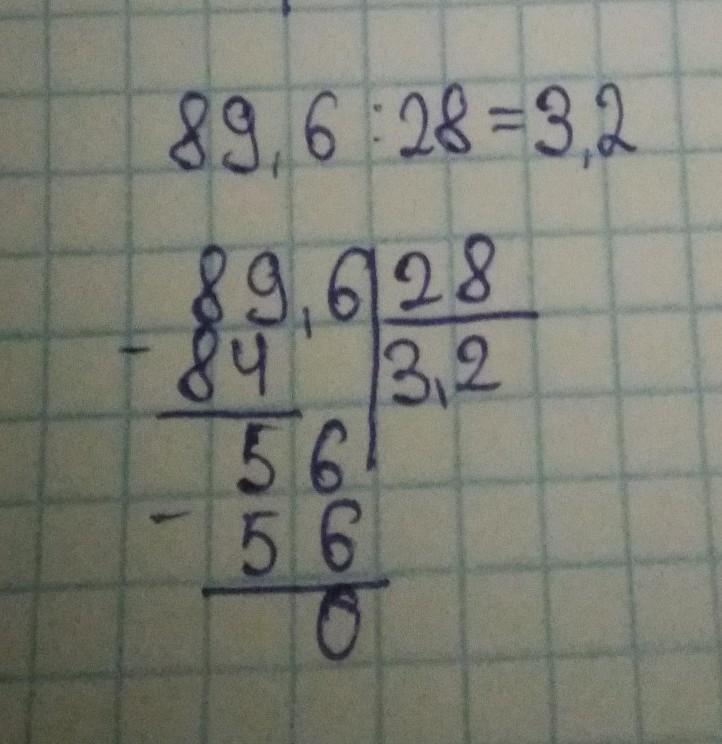 89,6:28=3,2
89,6|28
-84 |3,2
56
-56
0